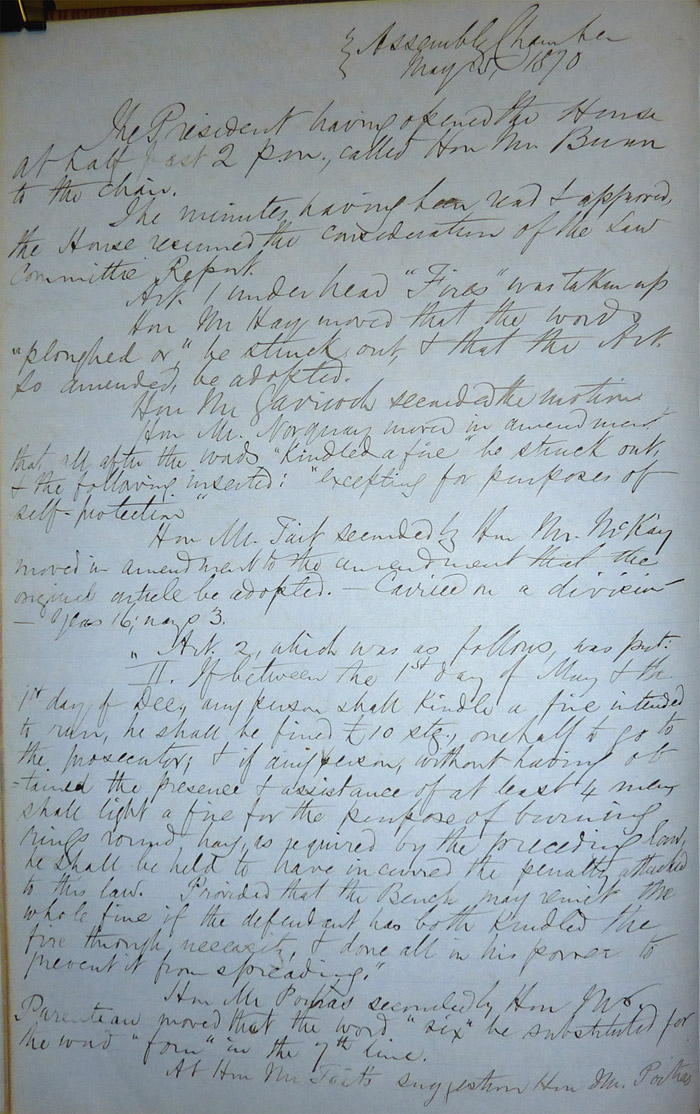 Assembly Chamber
May 25, 1870
The President having opened the House
at half past 2 p.m., called Hon Mr. Bunn
to the chair.
The minutes having been read & approved,
the House resumed the consideration of the Law
Committee Report.
Art. 1 under head "Fires" was taken up
Hon Mr Hay moved that the words
"ploughed or" be struck out, & that the Art.
so amended, be adopted.
Hon Mr seconded the motion
Hon Mr. Norquay moved in amendment
that all after the words "Kindled a fire" be struck out,
& the following inserted: "excepting for purposes of
self-protection"
Hon Mr. Tait seconded by Hon Mr. McKay
moved in amendment to the amendment that the
original article be adopted. – Carried on a division
– Yeas 16; nays 3.
" Art. 2, which was as follows, was put:
II. If between the 1st day of May & the
1st day of Dec, any person shall Kindle a fire intended
to run, he shall be fined £10 stg., one half to go to
the prosecutor; & if any person, without having ob
-tained the presence & assistance of at least 4 men
shall light a fire for the purpose of burning
rings round hay, as required by the preceding law,
he shall be held to have incurred the penalty attached
to this law. Provided that the Bench may remit the
whole fine if the defendant has both Kindled the
fire through necessity, & done all in his power to
prevent it from spreading."
Hon Mr Poitras seconded by Hon Mr.
Parenteau moved that the word "six" be substituted for
the word "four" in the 7th line.
At Hon Mr Tait's suggestion Hon Mr. Poitras